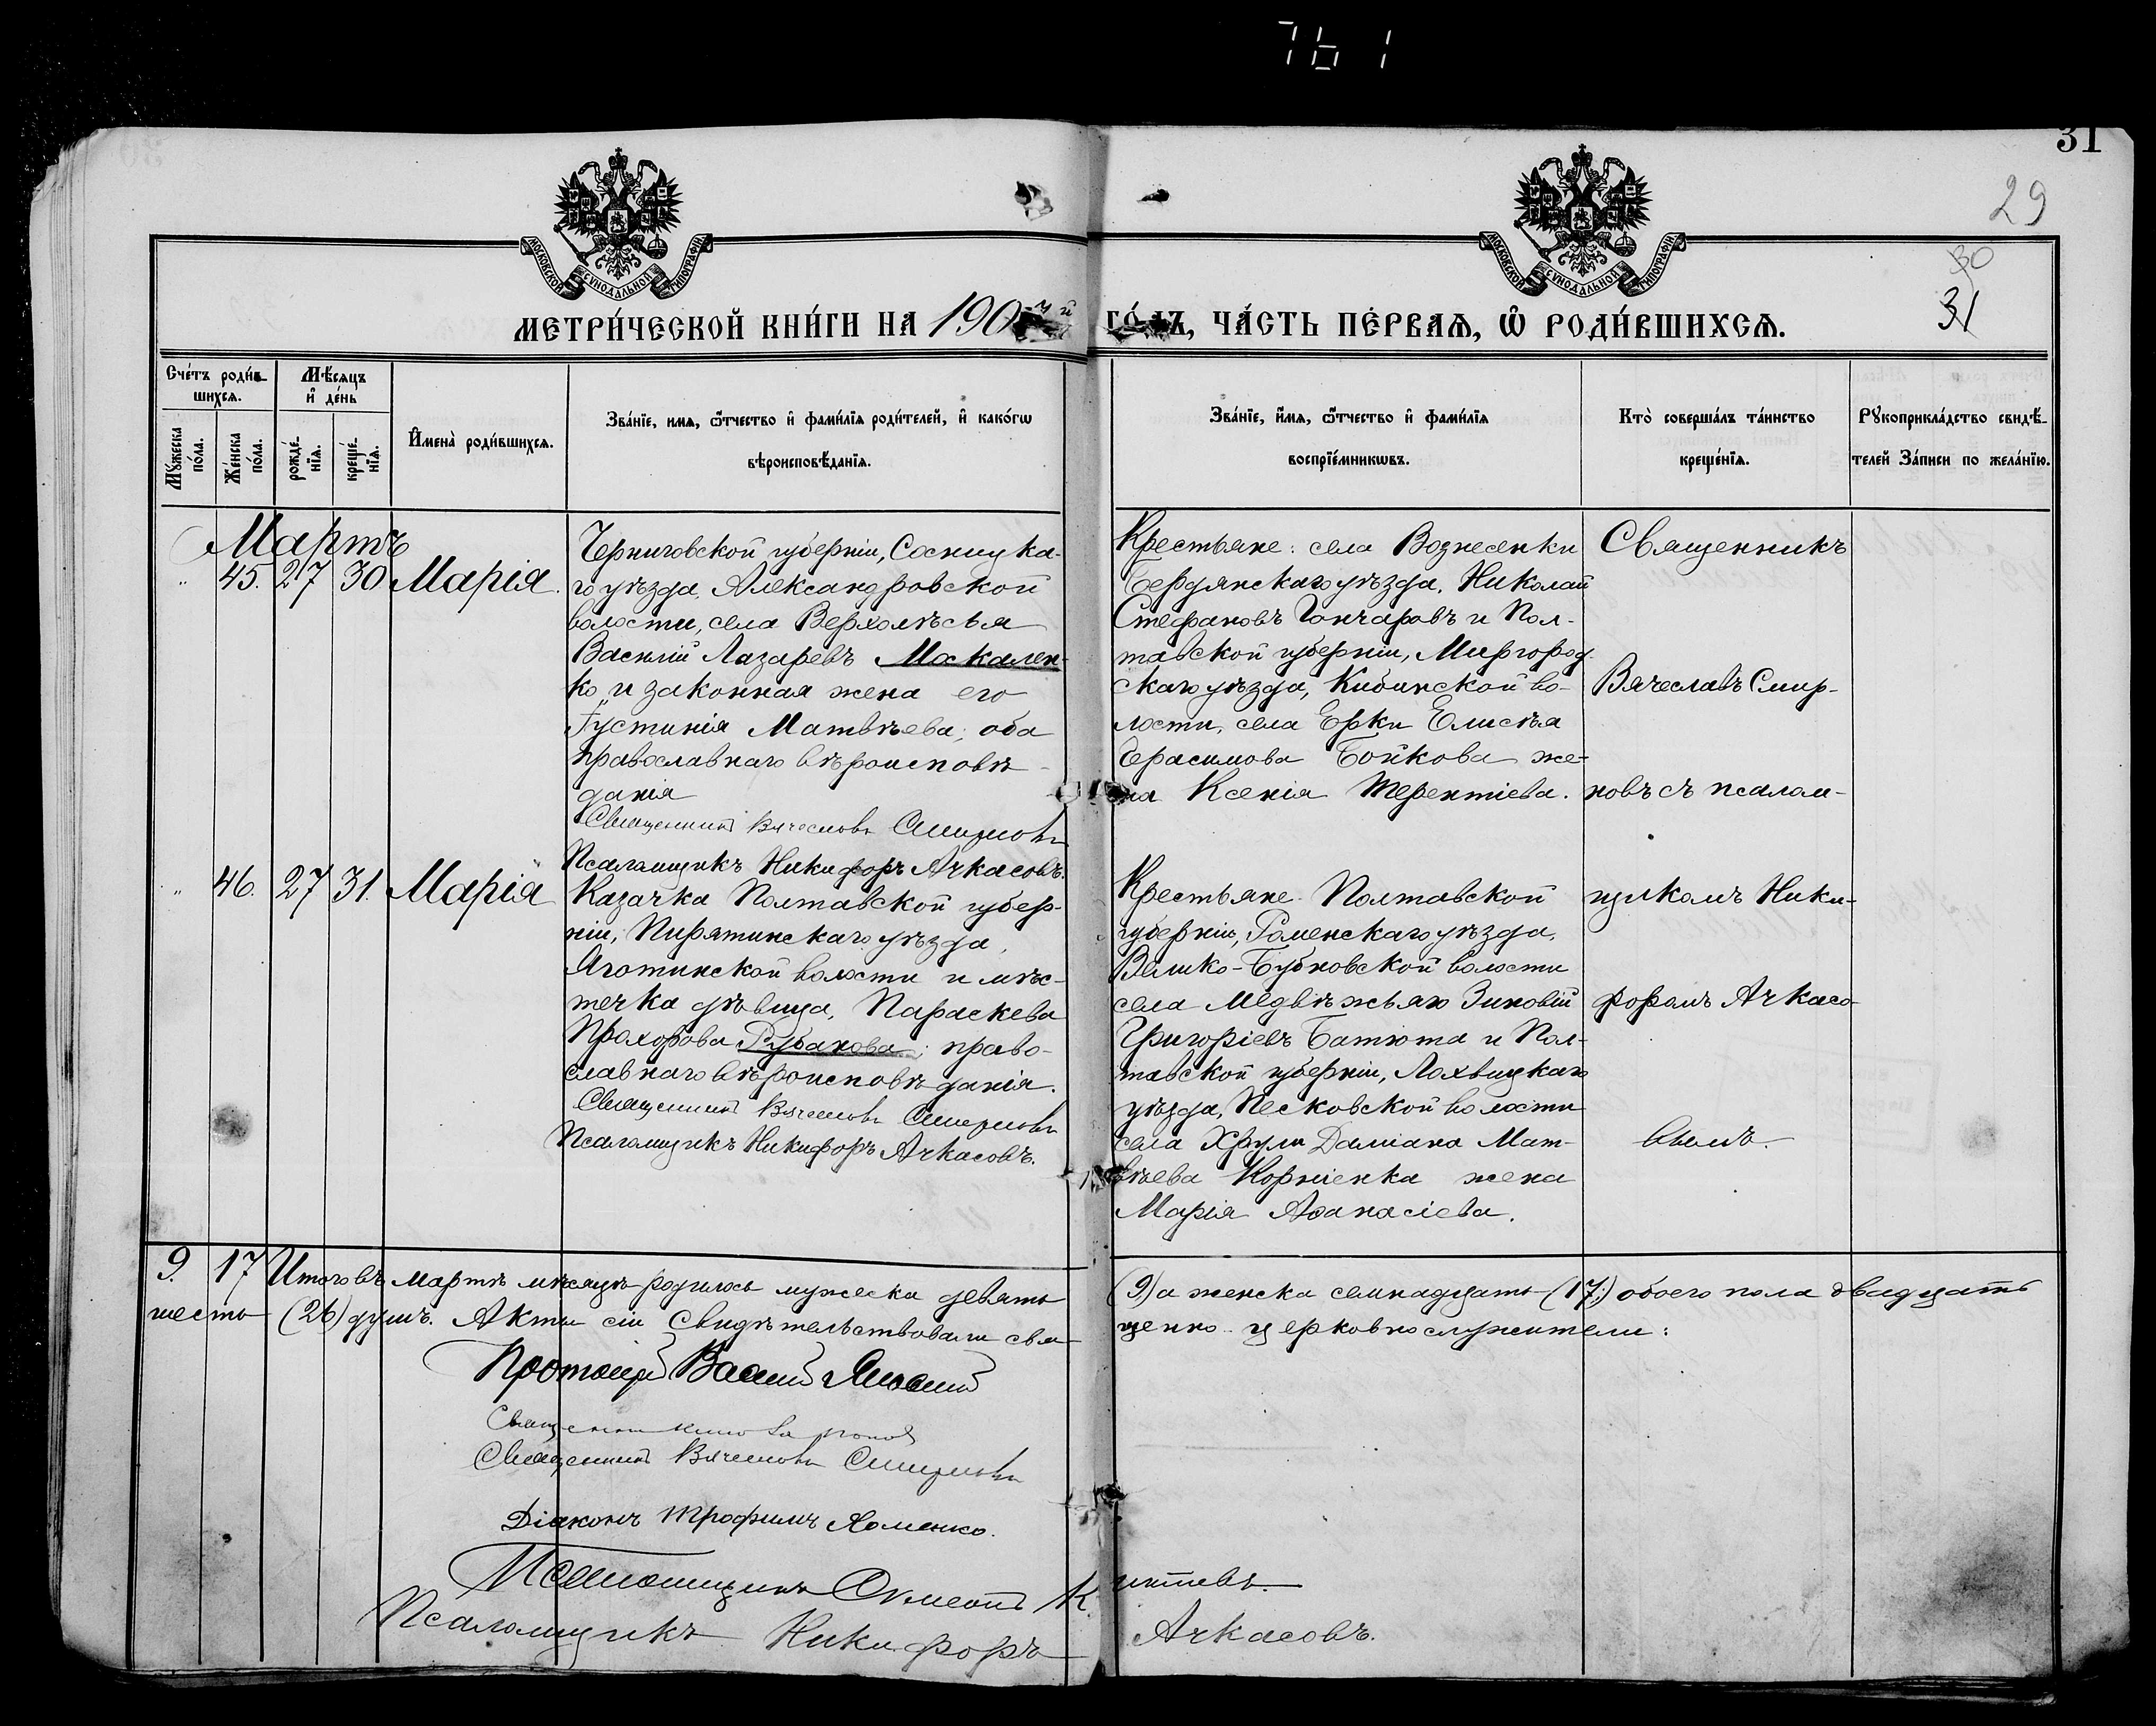 761
31
29
30
31
МОСКОВСКОЙ СѴНОДАЛЬНОЙ ТИПОГРАФІИ
МОСКОВСКОЙ СѴНОДАЛЬНОЙ ТИПОГРАФІИ
МЕТРИ́ЧЕСКОЙ КНИ́ГИ НА 190 й ГО́ДЪ, ЧА́СТЬ ПЕ́РВАѦ, Ѡ҆ РОДИ́ВШИХСѦ.
Сче́тъ роди́в-
шихсѧ.
Мѣ́сѧцъ
и҆ де́нь
Мꙋ́жеска по́ла.
Же́нска по́ла.
рожде́нїѧ.
креще́нїѧ.
И҆мена̀ роди́вшихсѧ.
Зва́нїе, имѧ, ѻ҆́тчество и҆ фами́лїѧ роди́телей, и҆ како́гѡ
вѣроисповѣ́данїѧ.
Зва́нїе, и҆́мѧ, ѻ҆́тчество и҆ фами́лїѧ
воспрїе́мникѡвъ.
Кто̀ соверша́лъ та́инство
креще́нїѧ.
Рꙋкоприкла́дство свидѣ́-
телей За́писи по жела́нїю.
Мартъ
" 45. 27 30 Марія.
Черниговской губерніи, Сосницка-
го уѣзда, Александровской
волости, села Верхолѣсья
Василій Лазаревъ Москален-
ко и законная жена его
Іустинія Матвѣева; оба
православнаго вѣроисповѣ-
данія
Священникъ Вячеславъ Смирновъ
Псаломщикъ Никифоръ Ачкасовъ.
Крестьяне: села Вознесенки
Бердянскаго уѣзда, Николай
Стефановъ Гончаровъ и Пол-
тавской губерніи, Миргород-
скаго уѣзда, Кибинской во-
лости, села Ерки Елисѣя
Герасимова Бойкова же-
на Ксенія Терентіева.
Священникъ
Вячеславъ Смир-
новъ съ псалом-
" 46. 27 31. Марія
Казачка Полтавской губер-
ніи, Пирятинскаго уѣзда,
Яготинской волости и мѣс-
течка дѣвица, Параскева
Прохорова Рубанова; право-
славнаго вѣроисповѣданія.
Священникъ Вячеславъ Смирновъ
Псаломщикъ Никифоръ Ачкасовъ.
Крестьяне Полтавской
губерніи, Роменскаго уѣзда,
Велико-Бубновской волости
села Медвѣжьяго Зиновій
Григоріевъ Батюта и Пол-
тавской губерніи, Лохвицкаго
уѣзда, Песковской волости
села Хрули Даміана Мат-
вѣева Корніенка жена
Марія Аѳанасіева.
щикомъ Ники-
форомъ Ачкасо-
вымъ.
9. 17 Итого въ мартѣ мѣсяцѣ родилось мужеска девять (9) а женска семнадцать (17;) обоего пола двадцать
шесть (26) душъ. Акты сіи свидѣтельствовали свя- щенно-церковнослужители:
Протоіерей Василій
Священникъ
Священникъ Вячеславъ Смирновъ
Діаконъ Трофимъ Хоменко.
Псаломщикъ
Псаломщикъ Никифоръ Ачкасовъ.